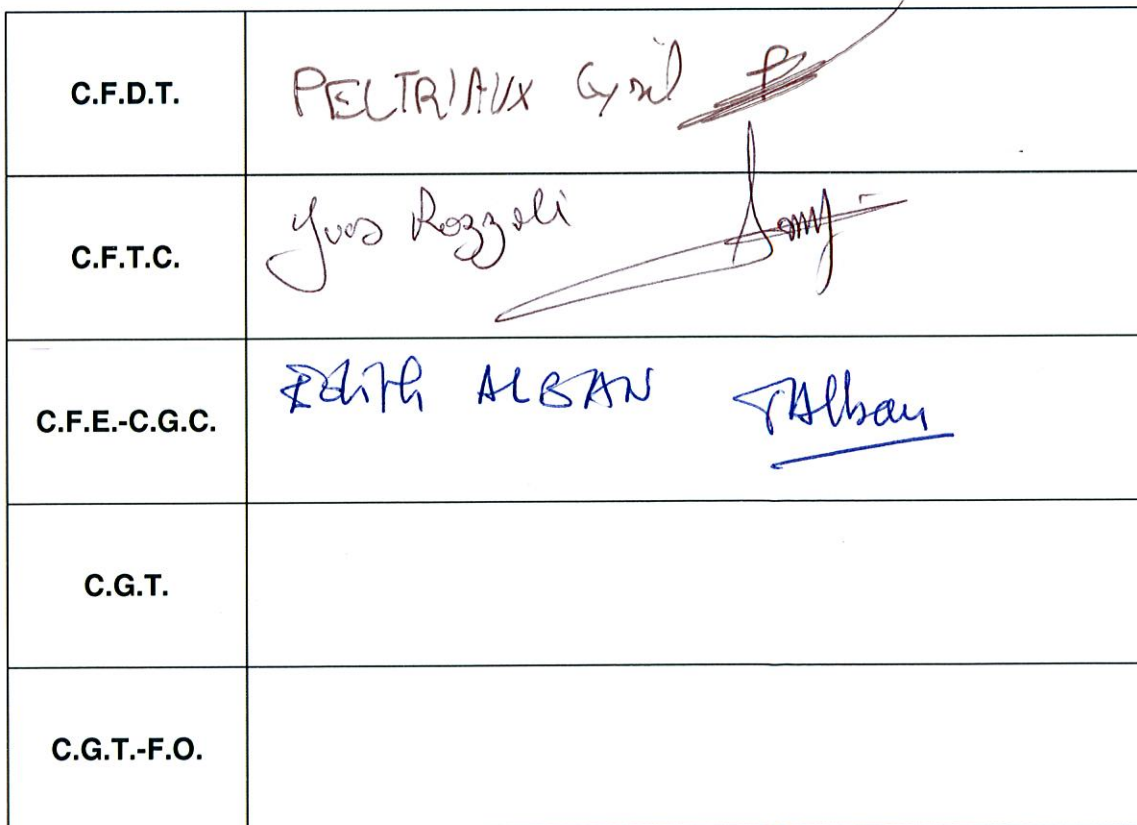 C.F.D.T. PELTRIAUX Cyril
C.F.T.C. Yves Rozzoli
C.F.E.-C.G.C. Edith ALBAN Alban
C.G.T.
C.G.T.-F.O.